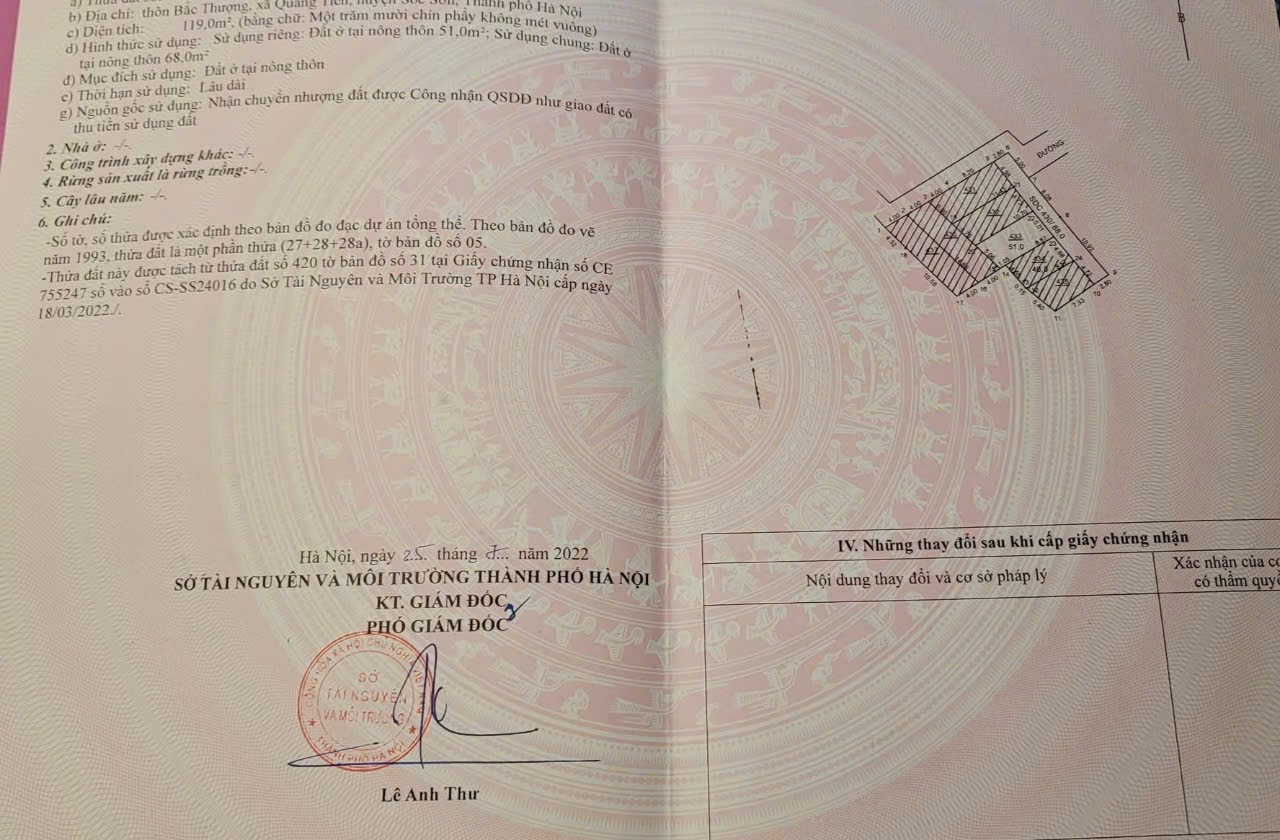 b) Địa chỉ: thôn Bắc Thượng, xã Quang Tiến, huyện Sóc Sơn, Thành phố Hà Nội
c) Diện tích: 119,0m², (bằng chữ: Một trăm mười chín phẩy không mét vuông)
d) Hình thức sử dụng: Sử dụng riêng: Đất ở tại nông thôn 51,0m²; Sử dụng chung: Đất ở
tại nông thôn 68,0m²
đ) Mục đích sử dụng: Đất ở tại nông thôn
e) Thời hạn sử dụng: Lâu dài
g) Nguồn gốc sử dụng: Nhận chuyển nhượng đất được Công nhận QSDĐ như giao đất có
thu tiền sử dụng đất
2. Nhà ở: -/-.
3. Công trình xây dựng khác: -/-.
4. Rừng sản xuất là rừng trồng:-/-.
5. Cây lâu năm: -/-.
6. Ghi chú:
-Số tờ, số thửa được xác định theo bản đồ đo đạc dự án tổng thể. Theo bản đồ đo vẽ
năm 1993, thửa đất là một phần thửa (27+28+28a), tờ bản đồ số 05.
-Thửa đất này được tách từ thửa đất số 420 tờ bản đồ số 31 tại Giấy chứng nhận số CE
755247 số vào sổ CS-SS24016 do Sở Tài Nguyên và Môi Trường TP Hà Nội cấp ngày
18/03/2022./.
B
ĐƯỜNG
SDC 430/ 68,0
433
51,0
Hà Nội, ngày 25 tháng 5 năm 2022
SỞ TÀI NGUYÊN VÀ MÔI TRƯỜNG THÀNH PHỐ HÀ NỘI
KT. GIÁM ĐỐC
PHÓ GIÁM ĐỐC
CỘNG HÒA XÃ HỘI CHỦ NGHĨA VIỆT NAM
SỞ
TÀI NGUYÊN
VÀ MÔI TRƯỜNG
THÀNH PHỐ HÀ NỘI
Lê Anh Thư
IV. Những thay đổi sau khi cấp giấy chứng nhận
Nội dung thay đổi và cơ sở pháp lý
Xác nhận của cơ
có thẩm quyề